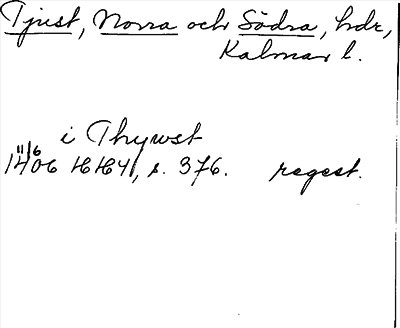 Tjust, Norra och Södra, hdr,
Kalmar l.
i Thywst
11/6
1406 HH41, s. 376. regest.